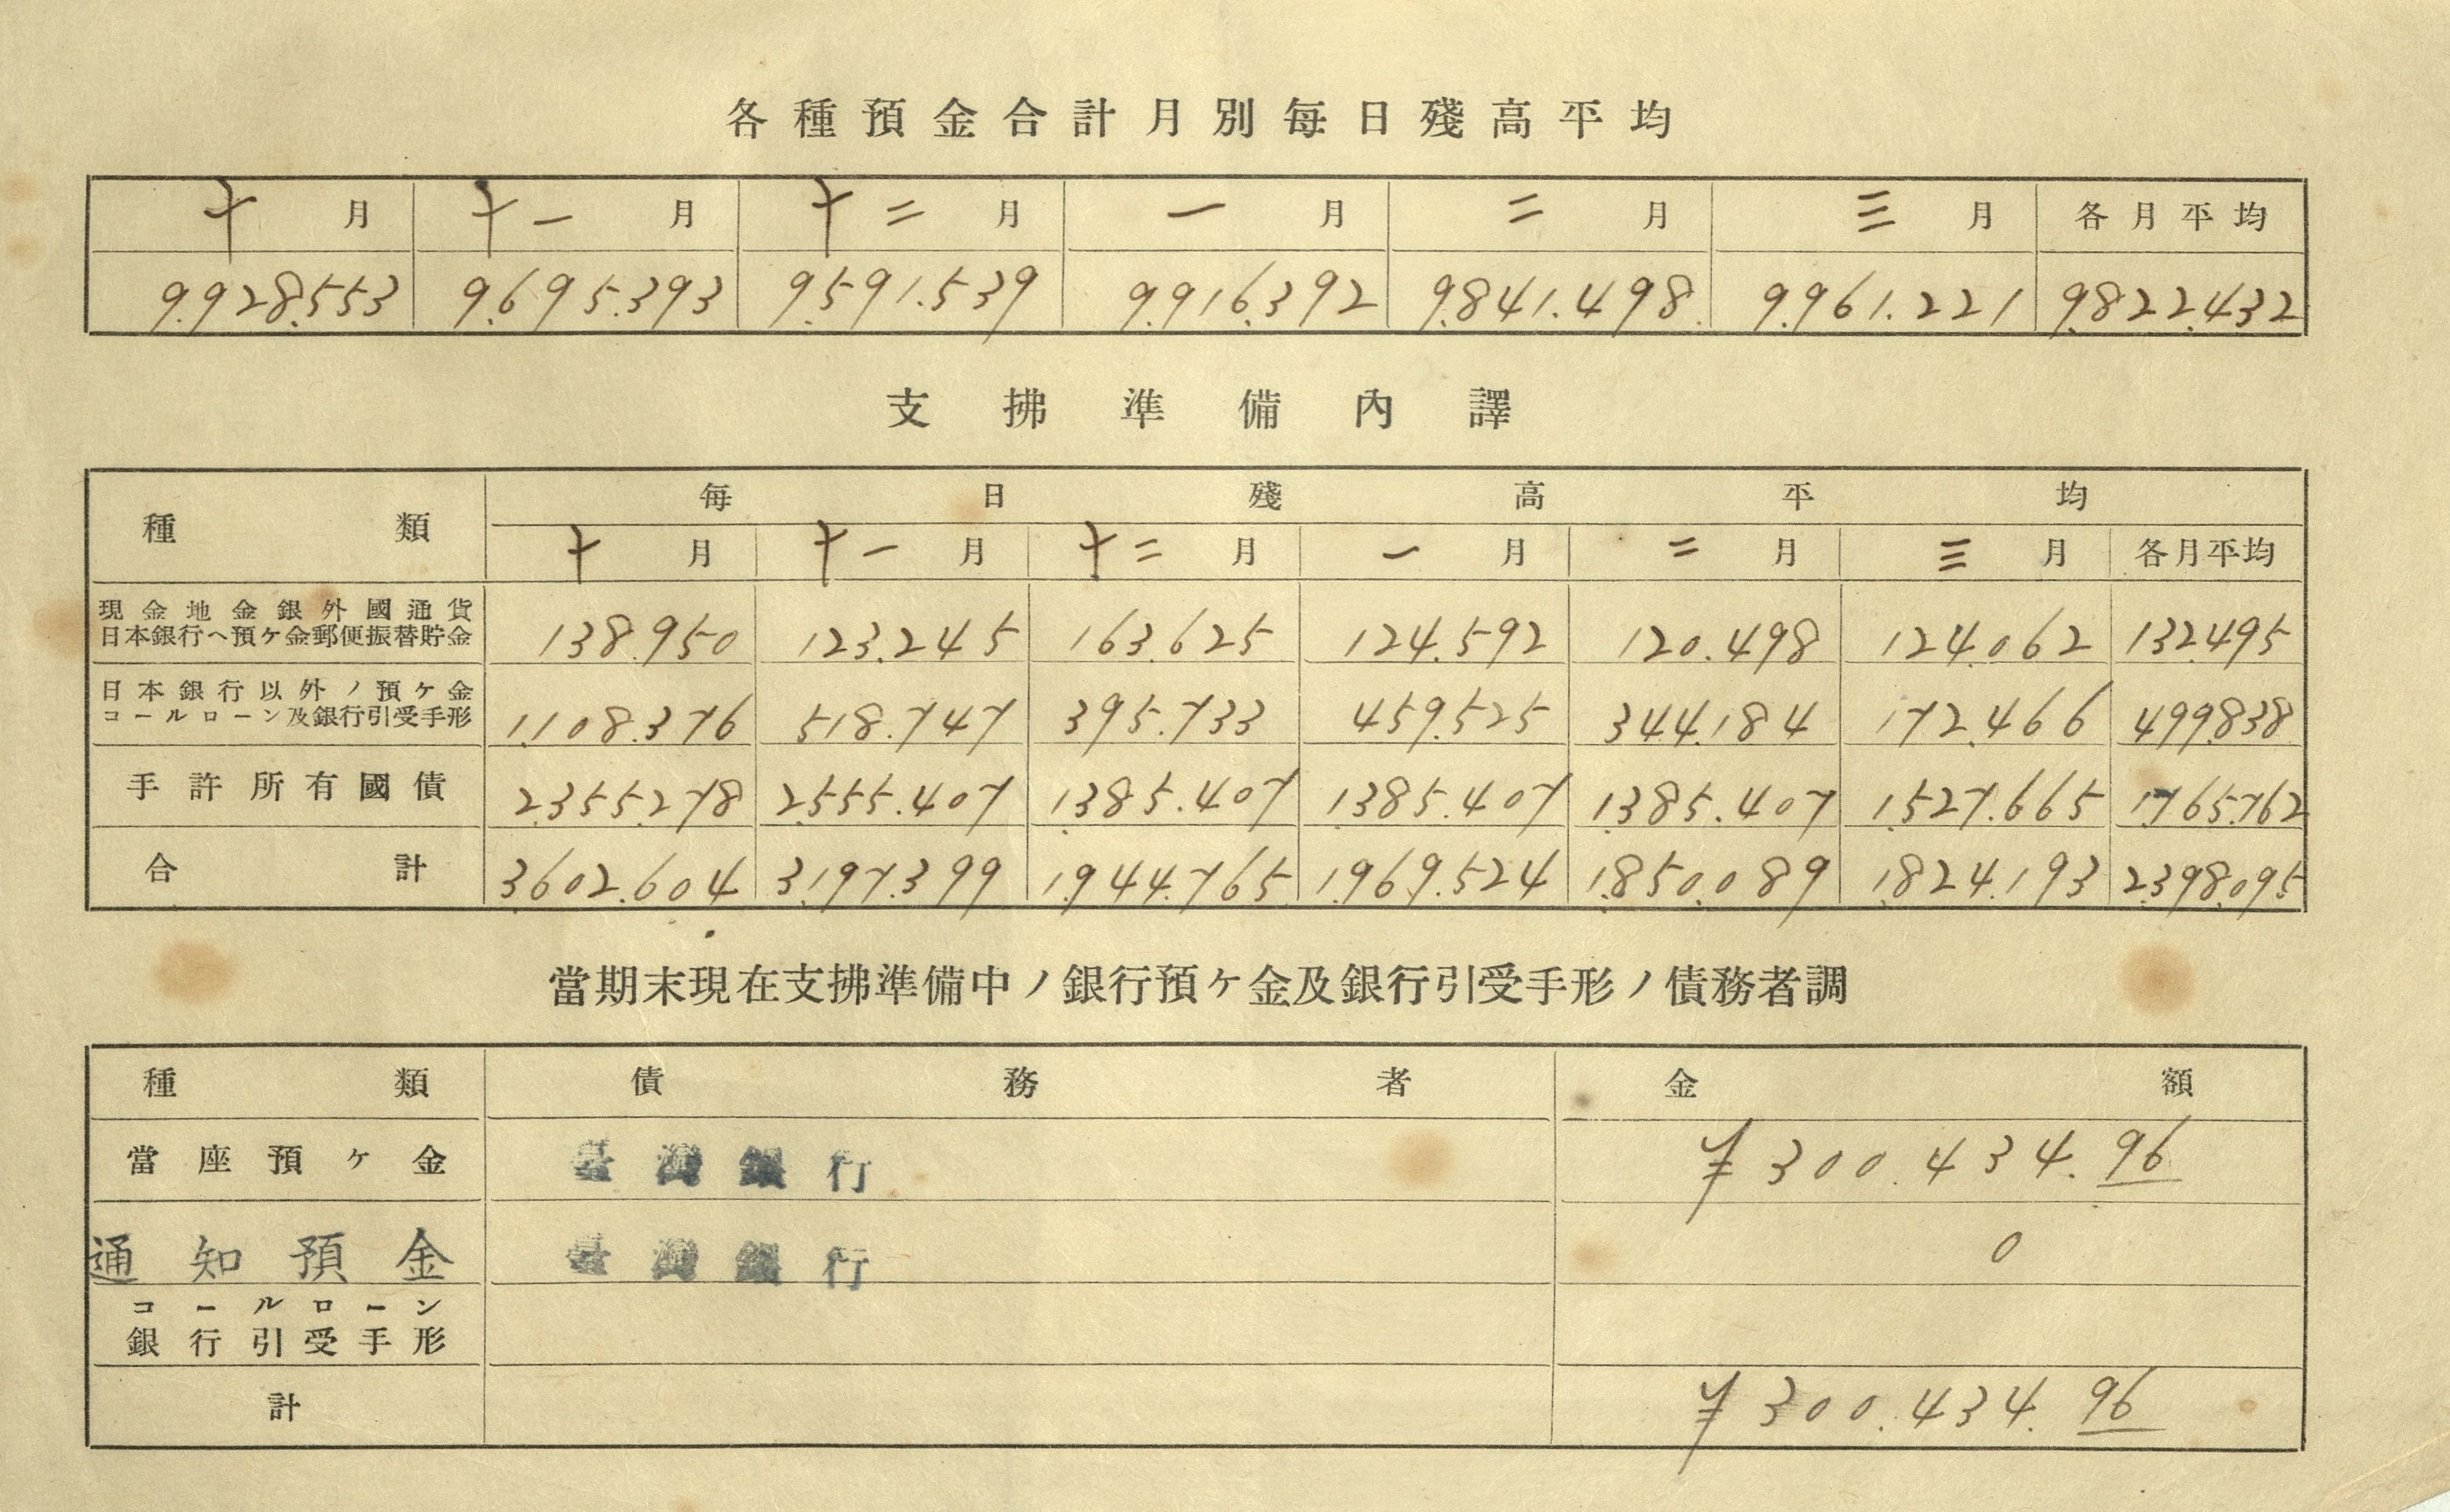 各種預金合計月別每日殘高平均
十月 十一月 十二月 一月 二月 三月 各月平均
9.928.553 9.695.393 9.591.539 9.916.392 9.841.498 9.961.221 9.822.432
支拂準備內譯
種類 每日殘高平均
十月 十一月 十二月 一月 二月 三月 各月平均
現金地金銀外國通貨
日本銀行ヘ預ケ金郵便振替貯金 138.950 123.245 163.625 124.592 120.498 124.062 132.495
日本銀行以外ノ預ケ金
コールローン及銀行引受手形 1.108.376 518.747 395.733 459.525 344.184 172.466 499.838
手許所有國債 2.355.278 2.555.407 1.385.407 1.385.407 1.385.407 1.527.665 1.765.762
合計 3.602.604 3.197.399 1.944.765 1.969.524 1.850.089 1.824.193 2.398.095
當期末現在支拂準備中ノ銀行預ケ金及銀行引受手形ノ債務者調
種類 債務者 金額
當座預ケ金 臺灣銀行 ¥300.434.96
通知預金 臺灣銀行 0
コールローン
銀行引受手形
計 ¥300.434.96